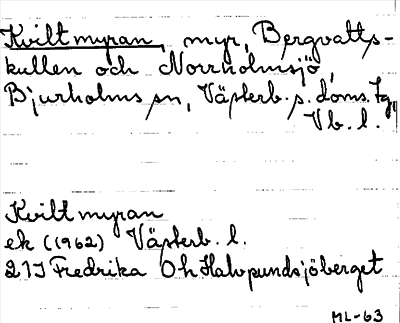 Kviltmyran, myr, Bergvatts-
kullen och Norrholmsjö,
Bjurholms sn, Västerb. s. doms. tg,
Vb. l.
Kviltmyran
ek (1962) Västerb. l.
21I Fredrika Oh Halvpundsjöberget
ML-63